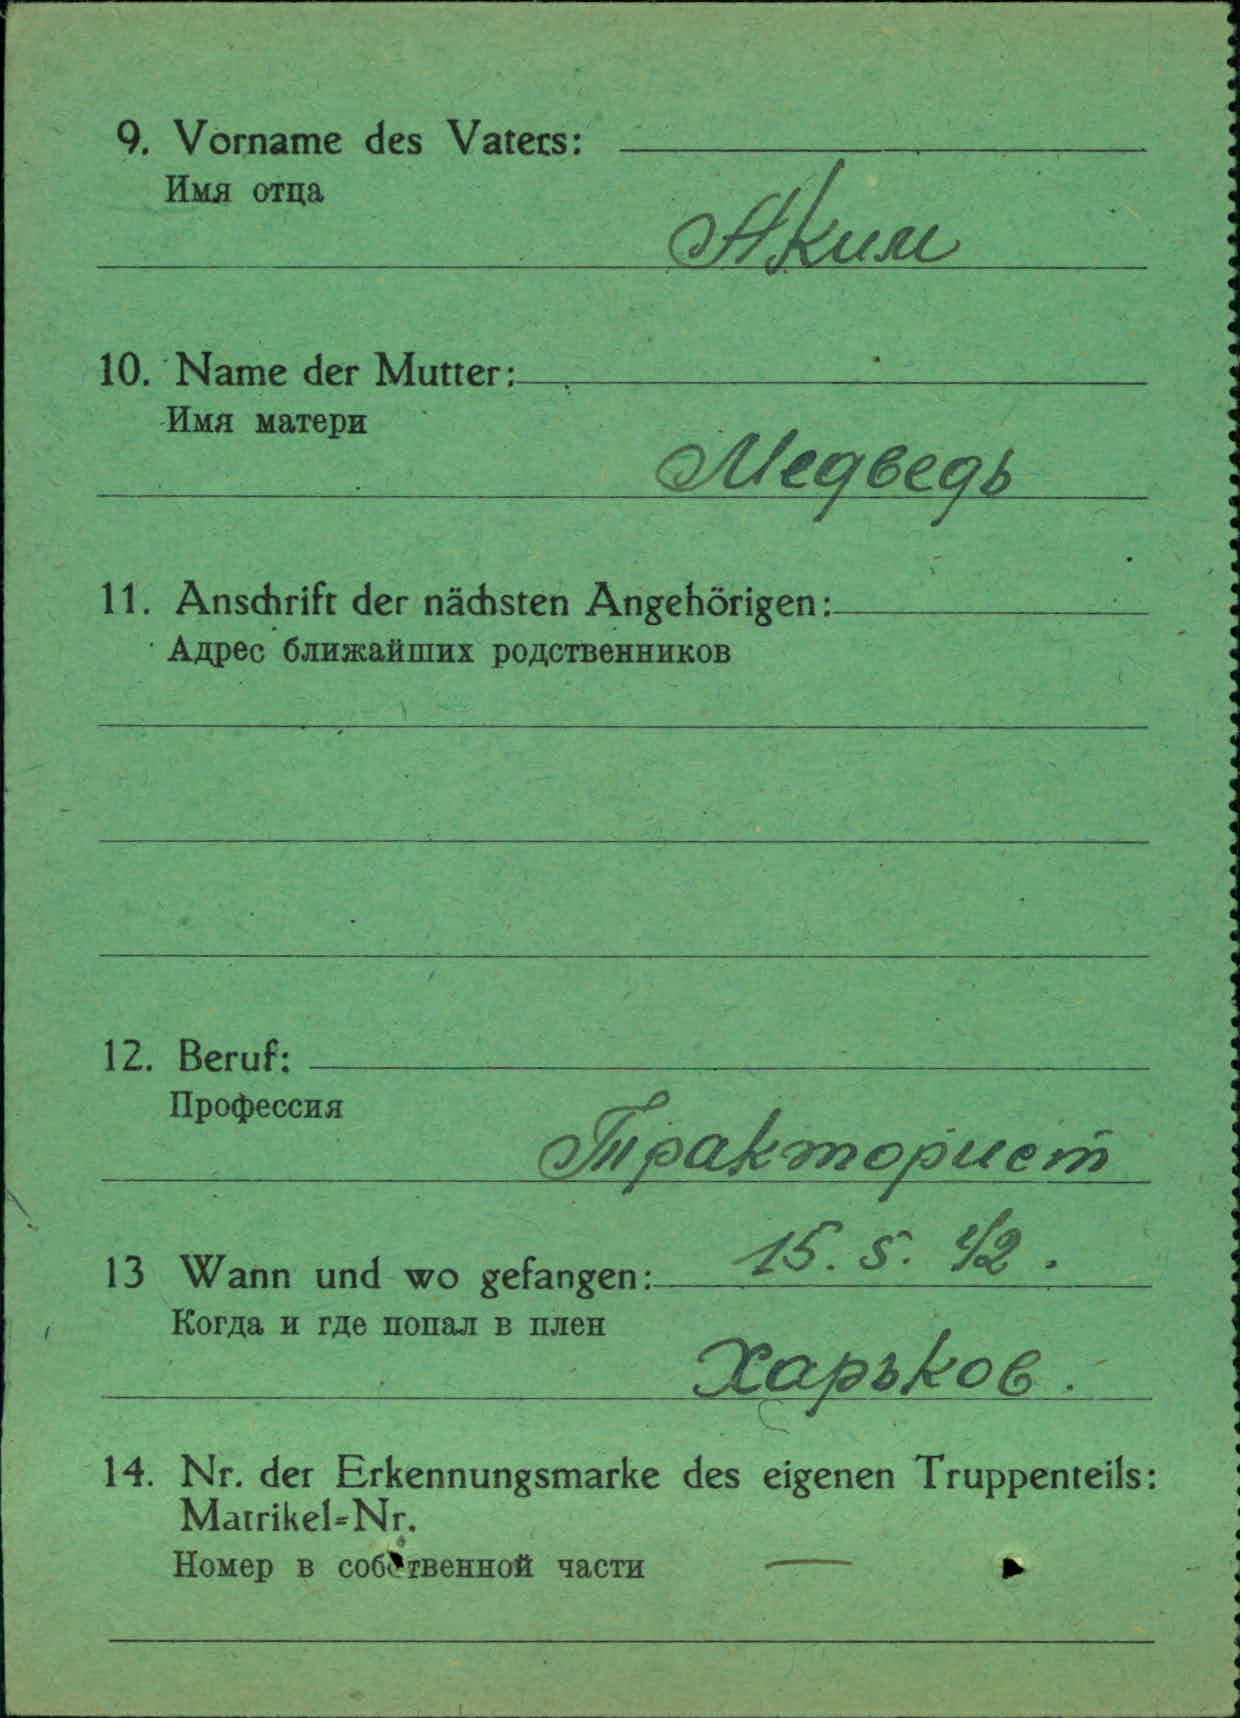 9. Vorname des Vaters:
Имя отца
Аким
10. Name der Mutter:
Имя матери
Медведь
11. Anschrift der nächsten Angehörigen:
Адрес ближайших родственников
12. Beruf:
Профессия
Тракторист
13 Wann und wo gefangen: 15. 5. 42.
Когда и где попал в плен
Харьков.
14. Nr. der Erkennungsmarke des eigenen Truppenteils:
Matrikel=Nr.
Номер в собственной части —